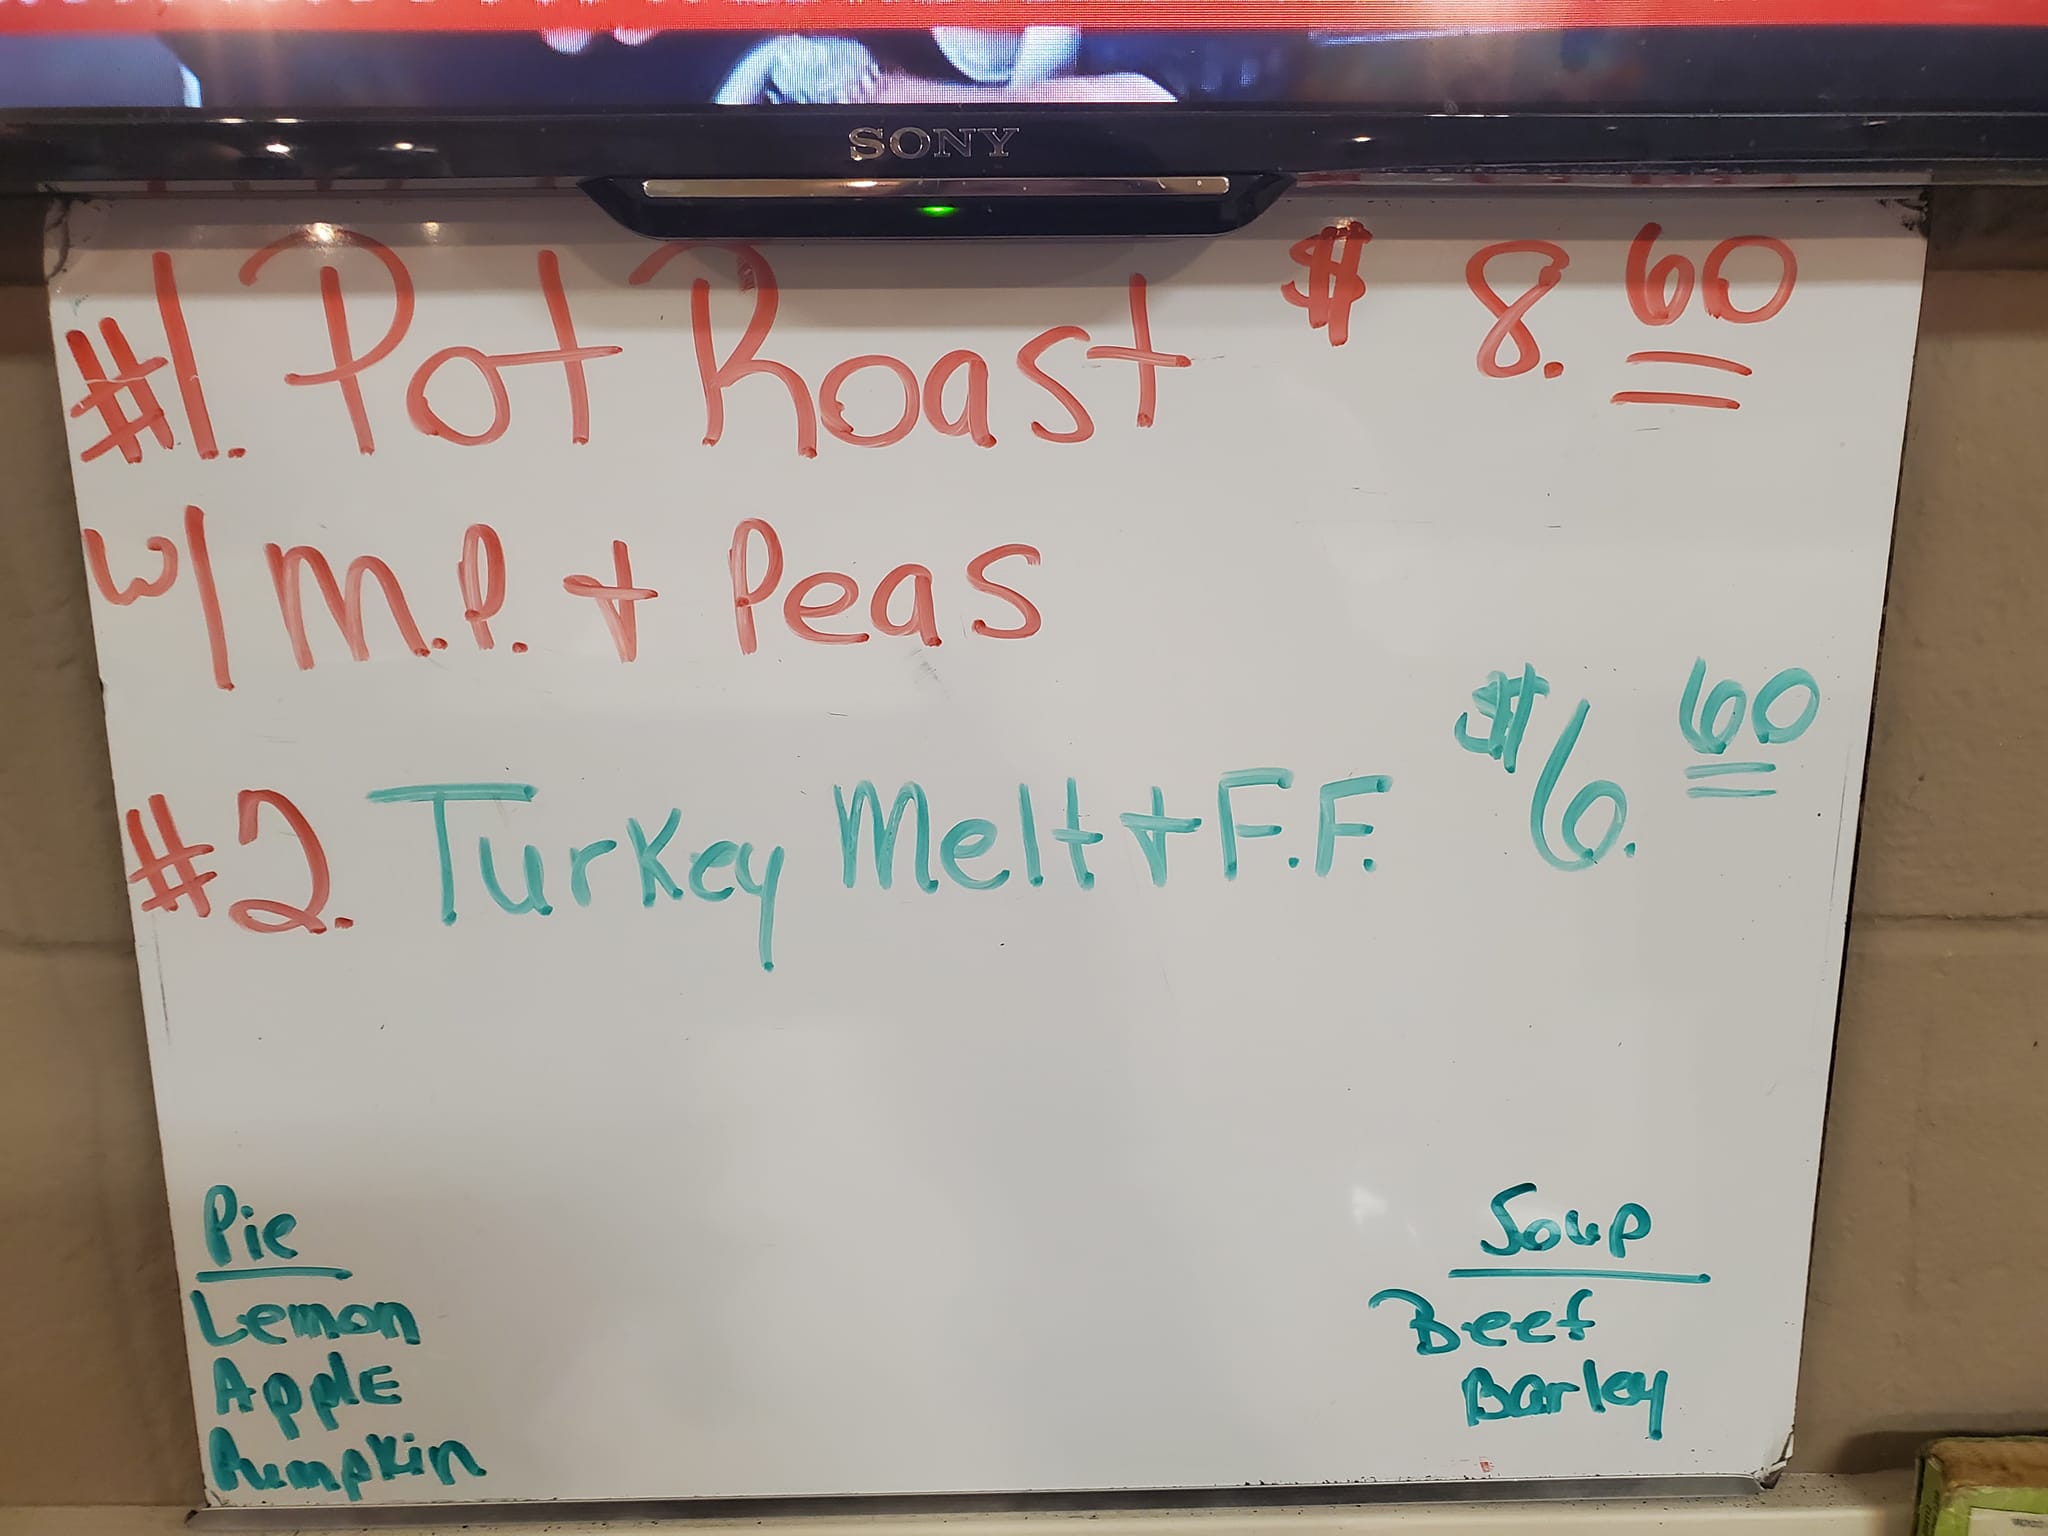 SONY
#1. Pot Roast $ 8.60
w/ M.P. + Peas
#2. Turkey Melt + F.F. $6.60
Pie
Lemon
Apple
Pumpkin
Soup
Beef
Barley